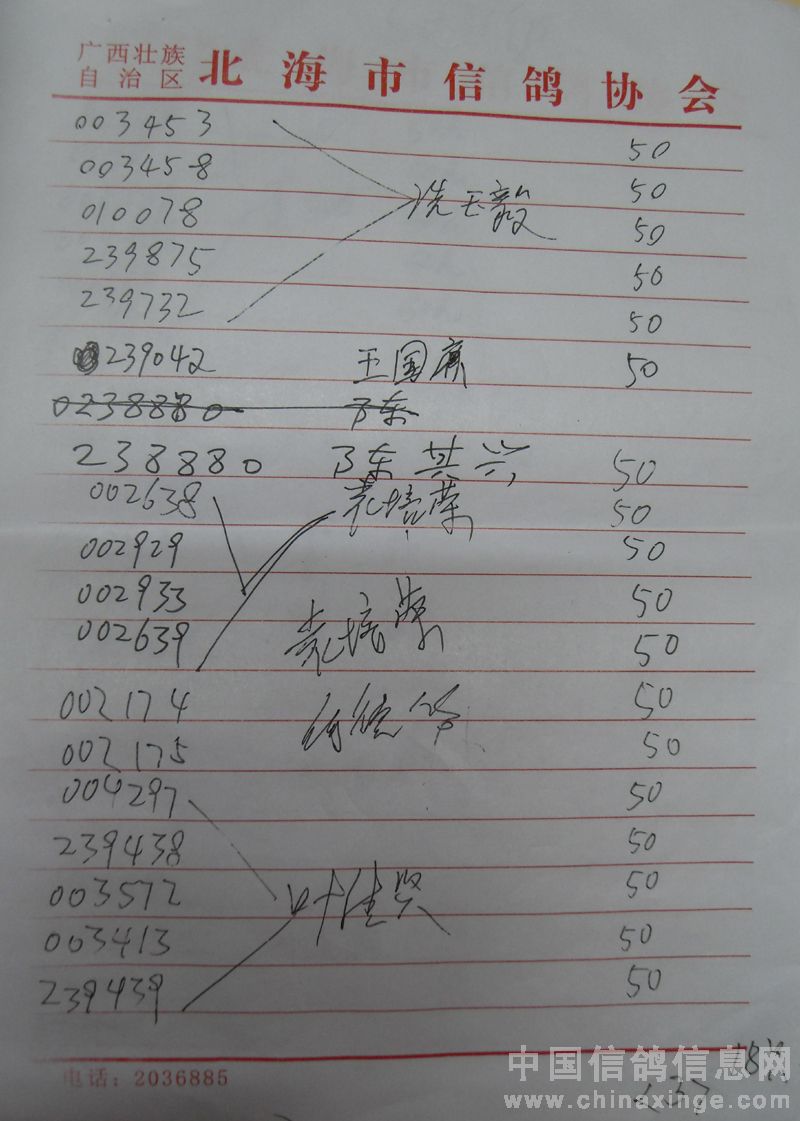 广西壮族
自治区
北海市信鸽协会
003453 50
003458 50
010078 冼玉毅 50
239875 50
239732 50
239042 王国 50
0238880 陈
238880 陈其兴 50
002638 袁培荣 50
002929 50
002933 50
002639 袁培荣 50
002174 50
002175 50
004297 50
239438 50
003572 叶佳贤 50
003413 50
239439 50
电话：2036885
<3>
中国信鸽信息网
www.chinaxinge.com